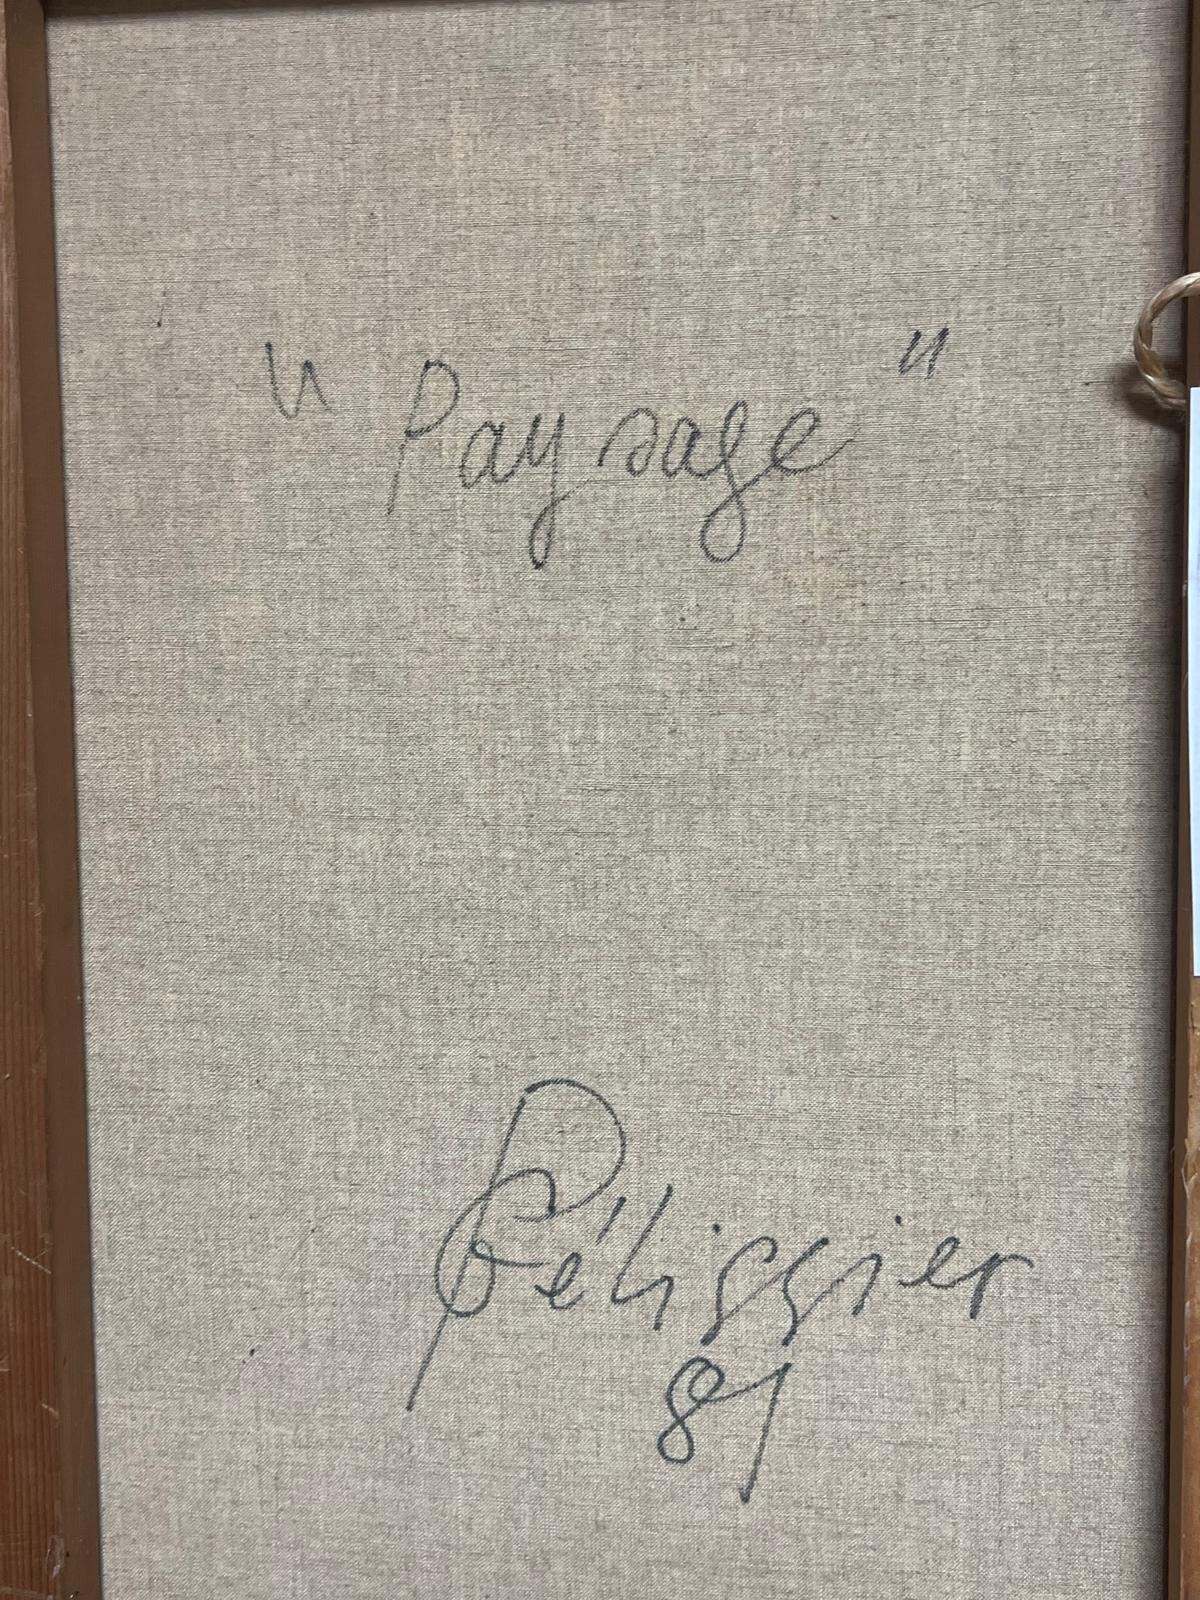 " Paysage "
Pélissier
81